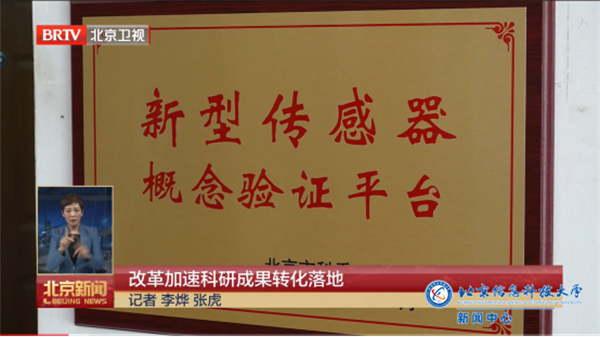 BRTV 北京卫视
新型传感器
概念验证平台
北京新闻
BEIJING NEWS
改革加速科研成果转化落地
记者 李烨 张虎
北京信息科技大学
新闻中心